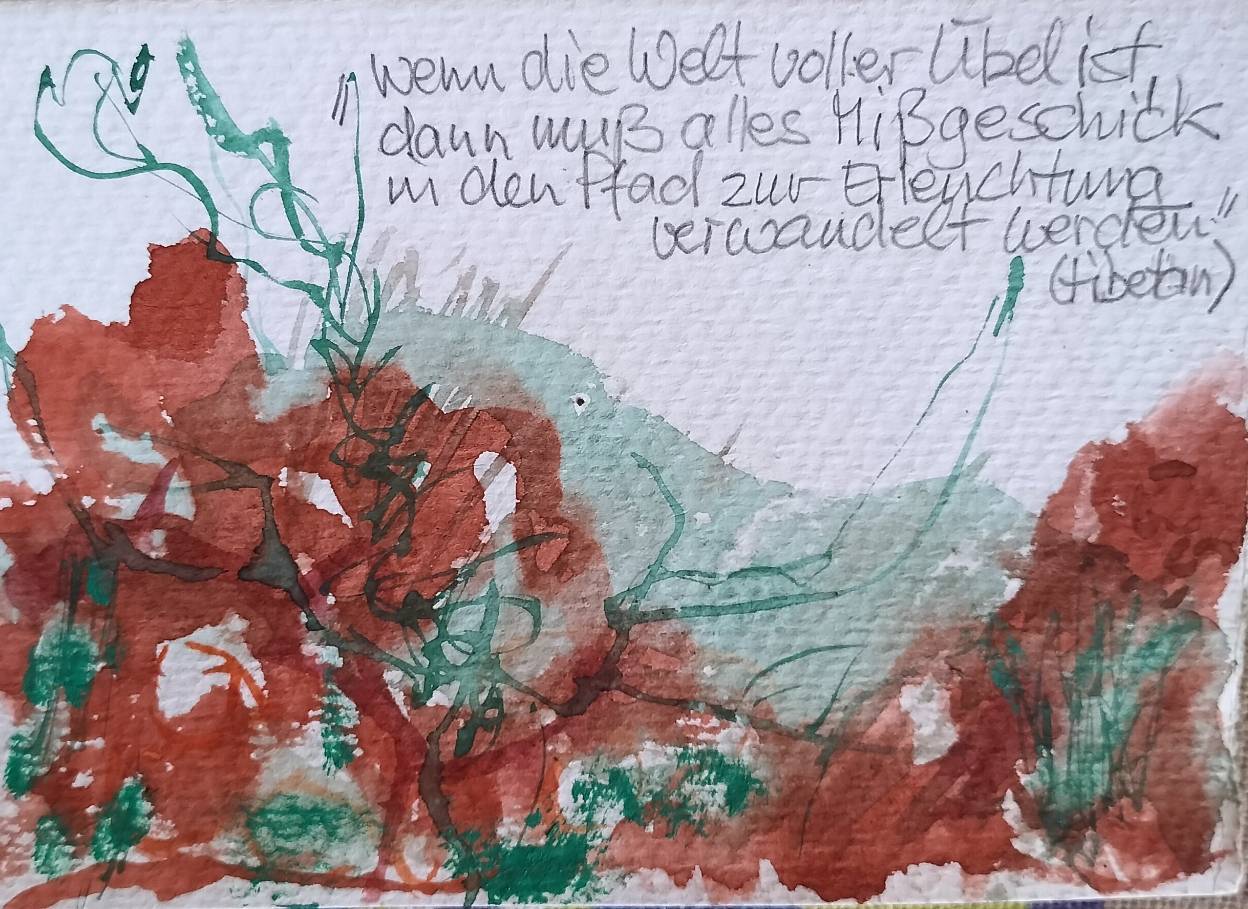 "wenn die Welt voller Übel ist,
dann muß alles Mißgeschick
in den Pfad zur Erleuchtung
verwandelt werden"
(tibetan)